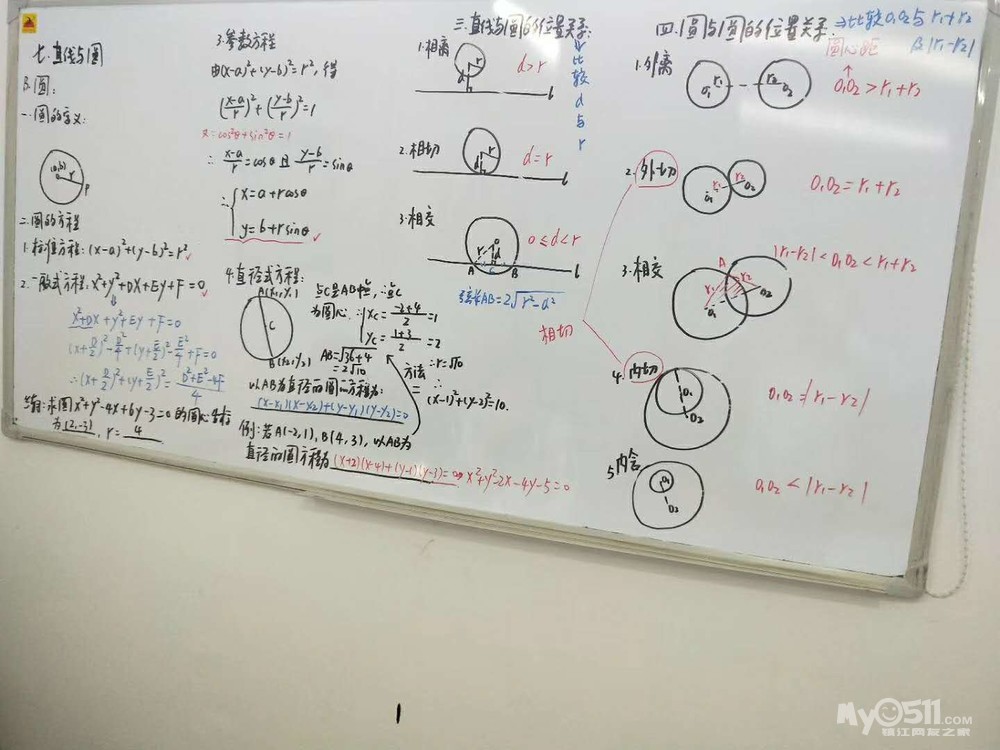 七.直线与圆
B.圆:
一.圆的定义:
(a,b)
r
P
二.圆的方程
1.标准方程:(x-a)²+(y-b)²=r²
2.一般式方程:x²+y²+Dx+Ey+F=0
x²+Dx+y²+Ey+F=0
(x+D/2)²-D²/4+(y+E/2)²-E²/4+F=0
∴(x+D/2)²+(y+E/2)²=(D²+E²-4F)/4
求圆x²+y²-4x+6y-3=0的圆心坐标
为(2,-3),r=4
3.参数方程
由(x-a)²+(y-b)²=r²,得
((x-a)/r)²+((y-b)/r)²=1
又∵cos²θ+sin²θ=1
∴(x-a)/r=cosθ且(y-b)/r=sinθ
∴{x=a+rcosθ
y=b+rsinθ
4.直径式方程:
A(x₁,y₁)
C
B(x₂,y₂)
∵C是AB中点,∴C
为圆心,∴{xc=(-2+4)/2=1
yc=(1+3)/2=2
AB=√(36+4)
=2√10
∴r=√10
方法二
∴(x-1)²+(y-2)²=10.
以AB为直径的圆的方程为:
(x-x₁)(x-x₂)+(y-y₁)(y-y₂)=0
例:若A(-2,1),B(4,3),以AB为
直径的圆方程为(x+2)(x-4)+(y-1)(y-3)=0⇔x²+y²-2x-4y-5=0
三.直线与圆的位置关系:
⇒比较d与r
1.相离
r
d
l
d>r
2.相切
r
d
l
d=r
3.相交
O
r
d
A
B
l
0≤d<r
弦长AB=2√(r²-d²)
四.圆与圆的位置关系:
⇒比较O₁O₂与r₁+r₂
及|r₁-r₂|
圆心距
1.外离
O₁
r₂
O₂
O₁O₂>r₁+r₂
2.外切
r₁
r₂
O₁
O₁O₂=r₁+r₂
3.相交
A
r₁
r₂
O₁
O₂
|r₁-r₂|<O₁O₂<r₁+r₂
相切
4.内切
O₁
O₂
O₁O₂=|r₁-r₂|
5.内含
O₁
O₂
O₁O₂<|r₁-r₂|
My0511.COM
镇江网友之家